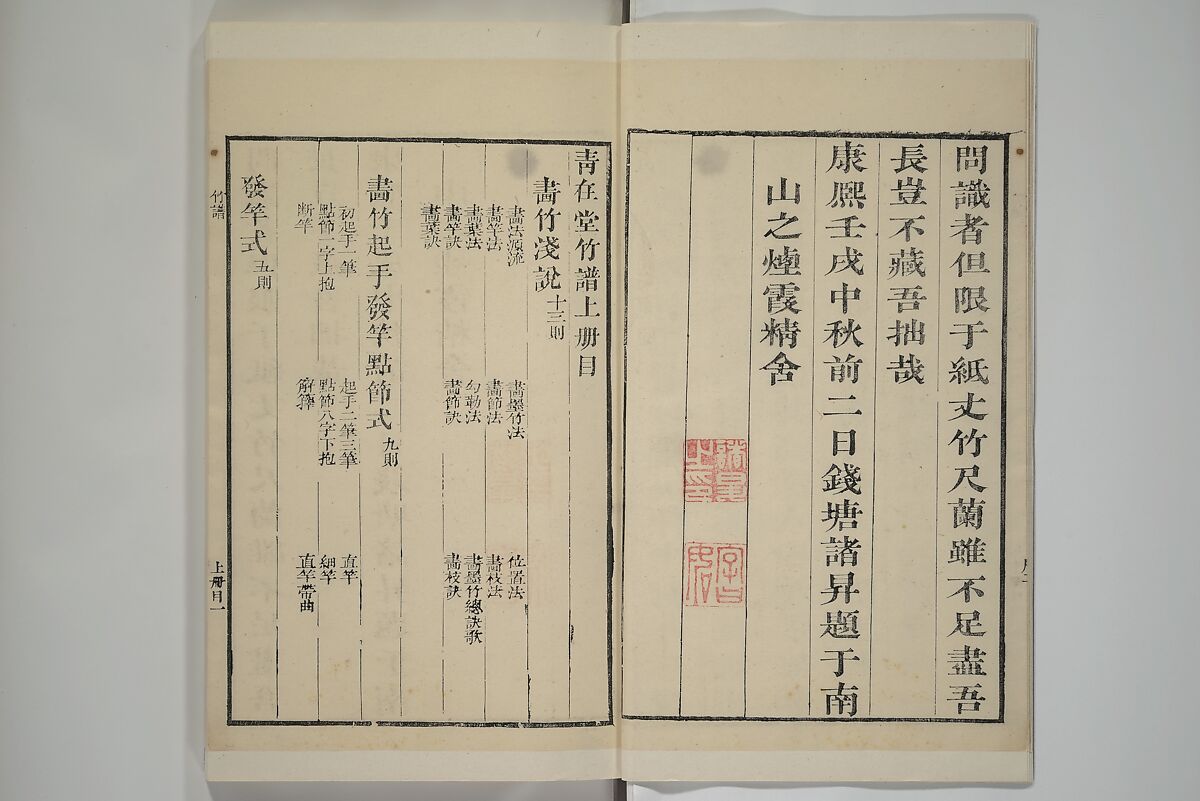 問識者但限于紙丈竹尺蘭雖不足盡吾
長豈不藏吾拙哉
康熈壬戌中秋前二日錢塘諸昇題于南
山之煙霞精舍
靑在堂竹譜上册目
畫竹淺說 十三則
畫法源流 畫墨竹法 位置法
畫竿法 畫節法 畫枝法
畫葉法 勾勒法 畫墨竹總訣歌
畫竿訣 畫節訣 畫枝訣
畫葉訣
畫竹起手發竿點節式 九則
初起手一筆 起手二筆三筆 直竿
點節一字上抱 點節八字下抱 細竿
断竿 解籜 直竿帶曲
發竿式 五則
竹譜
上册目一